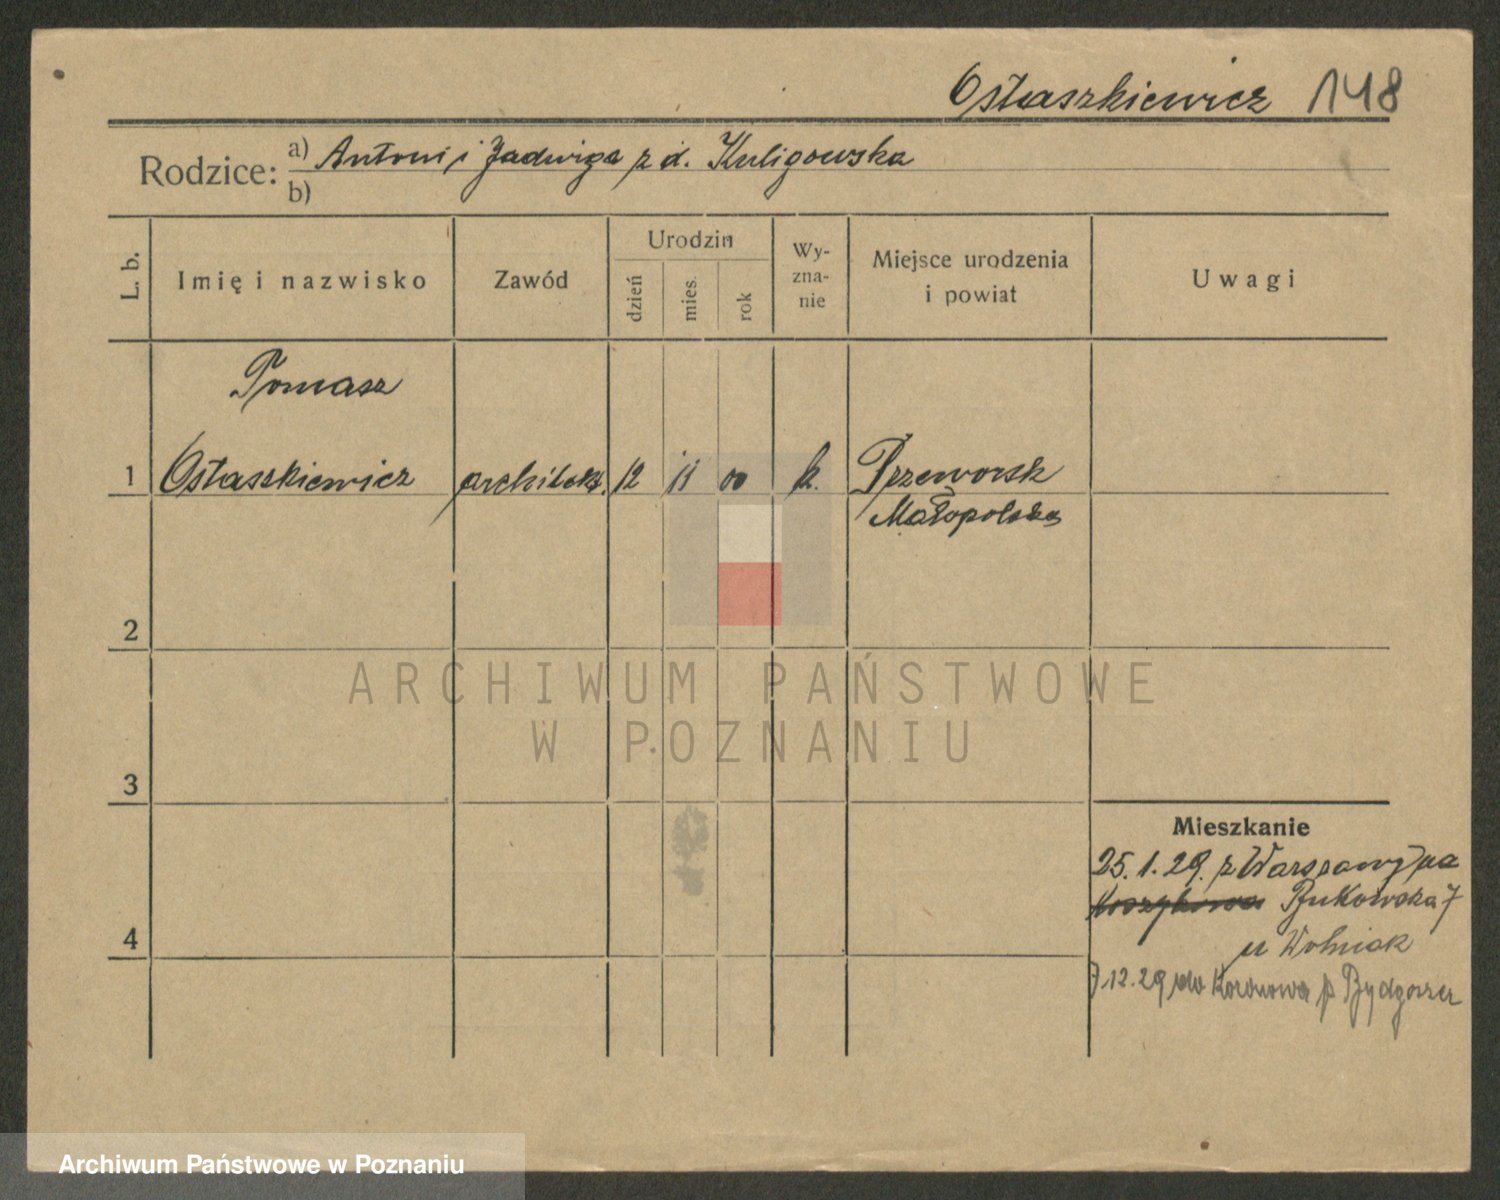 Ostaszkiewicz 148
Rodzice: a) Antoni i Jadwiga z d. Kuligowska
b)
L. b.
Imię i nazwisko
Zawód
Urodzin
dzień
mies.
rok
Wy-
zna-
nie
Miejsce urodzenia
i powiat
Uwagi
Tomasz
1 Ostaszkiewicz architekt. 12 11 00 k. Przeworsk
Małopolska
2
3
4
ARCHIWUM PAŃSTWOWE
W POZNANIU
Mieszkanie
25.1.29. z Warszawy na
Bukowska 7
u Wolniak
7.12.29 do Koronowa p Bydgoszcz
Archiwum Państwowe w Poznaniu